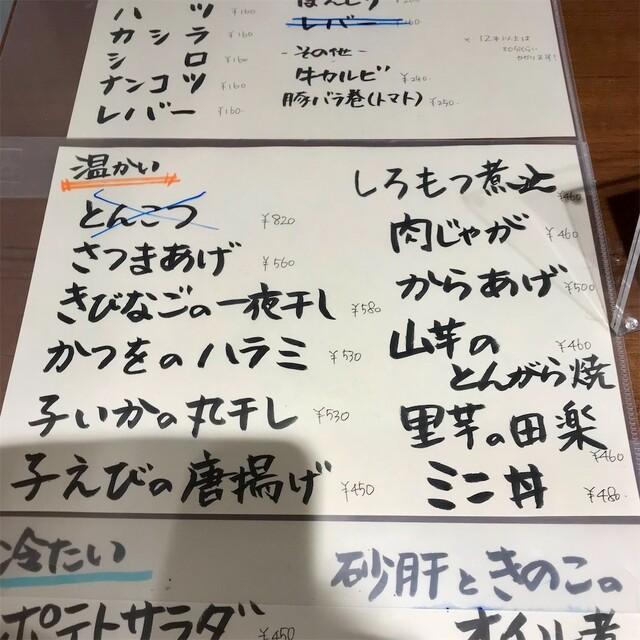 ハツ ¥160
カシラ ¥160
シロ ¥160
ナンコツ ¥160
レバー ¥160
レバー
-その他-
牛カルビ ¥240
豚バラ巻(トマト) ¥250
温かい
とんこつ ¥820
さつまあげ ¥560
きびなごの一夜干し ¥580
かつをのハラミ ¥530
子いかの丸干し ¥530
子えびの唐揚げ ¥450
しろもつ煮込 ¥460
肉じゃが ¥460
からあげ ¥500
山芋の ¥460
とんがら焼
里芋の田楽 ¥460
ミニ丼 ¥480
冷たい
ポテトサラダ ¥450
砂肝ときのこの
オイル煮